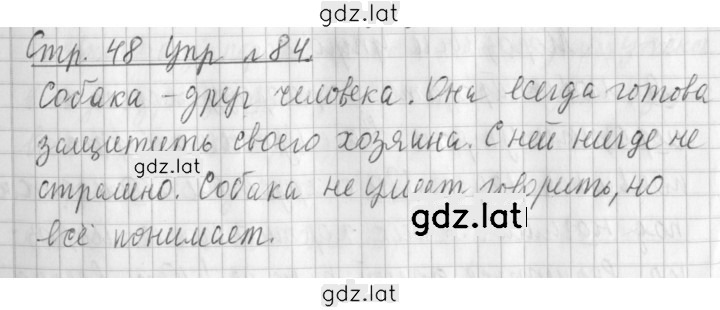 gdz.lat
Стр. 48 Упр № 84.
Собака - друг человека. Она всегда готова
защитить своего хозяина. С ней нигде не
gdz.lat
страшно. Собака не умеет говорить, но
gdz.lat
всё понимает.
gdz.lat